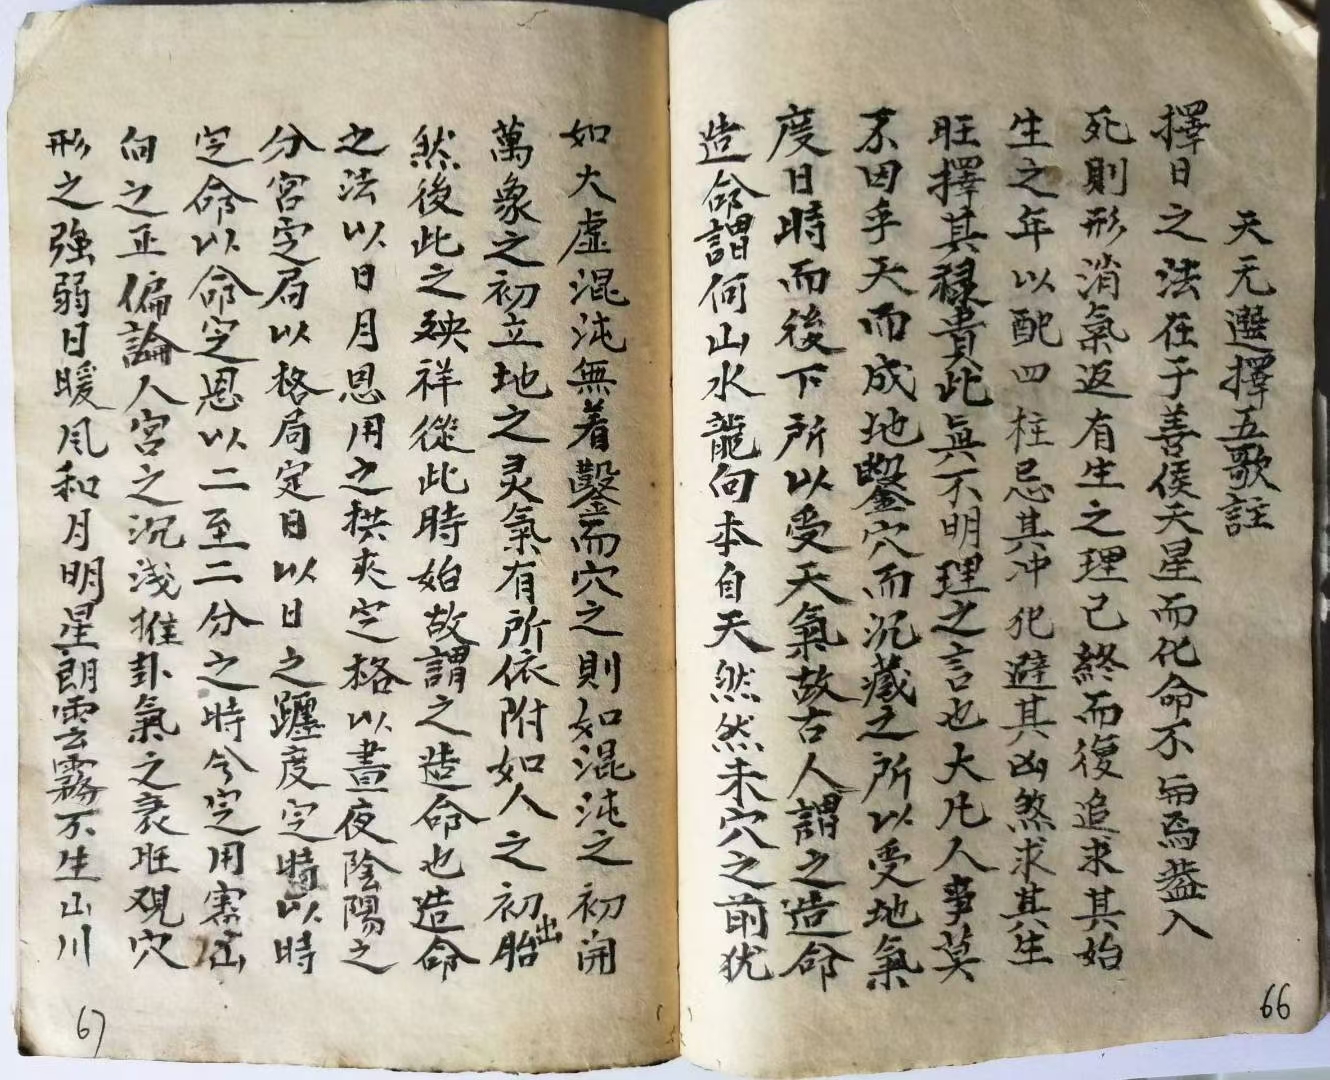 天元選擇五歌註
擇日之法在于善侯天星而化命不与焉蓋人
死則形消氣返有生之理已終而復追求其始
生之年以配四柱忌其冲犯避其凶煞求其生
旺擇其祿貴此真不明理之言也大凡人事莫
不因乎天而成地鑿穴而沉藏之所以受地氣
度日時而後下所以受天氣故古人謂之造命
造命謂何山水龍向本自天然然未穴之前犹
66
如大虛混沌無着鑿而穴之則如混沌之初開
萬象之初立地之灵氣有所依附如人之初出胎
然後此之殃祥從此時始故謂之造命也造命
之法以日月恩用之拱夾定格以晝夜陰陽之
分宮定局以格局定日以日之躔度定時以時
定命以命定恩以二至二分之時令定用審山
向之正偏論人宮之沉淺推卦氣之衰旺观穴
形之強弱日暖风和月明星朗雲霧不生山川
67